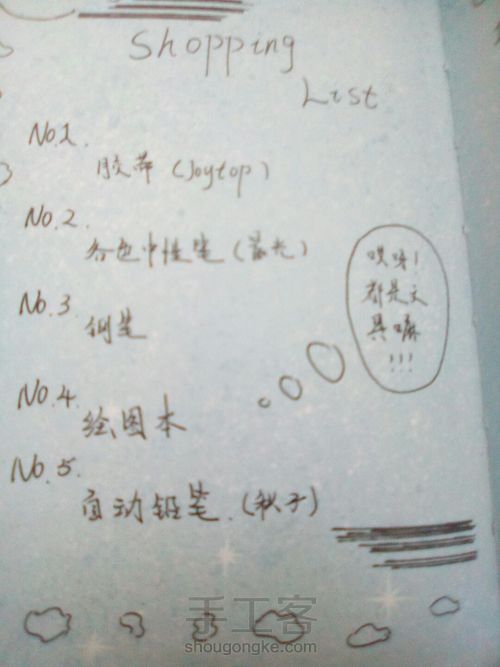 Shopping
List
No.1.
胶带 (Joytop)
No.2.
各色中性笔 (晨光)
No.3
钢笔
No.4.
绘图本
No.5.
自动铅笔.(秋子)
哎呀!
都是文
具嘛
!!!
手工客
shougongke.com